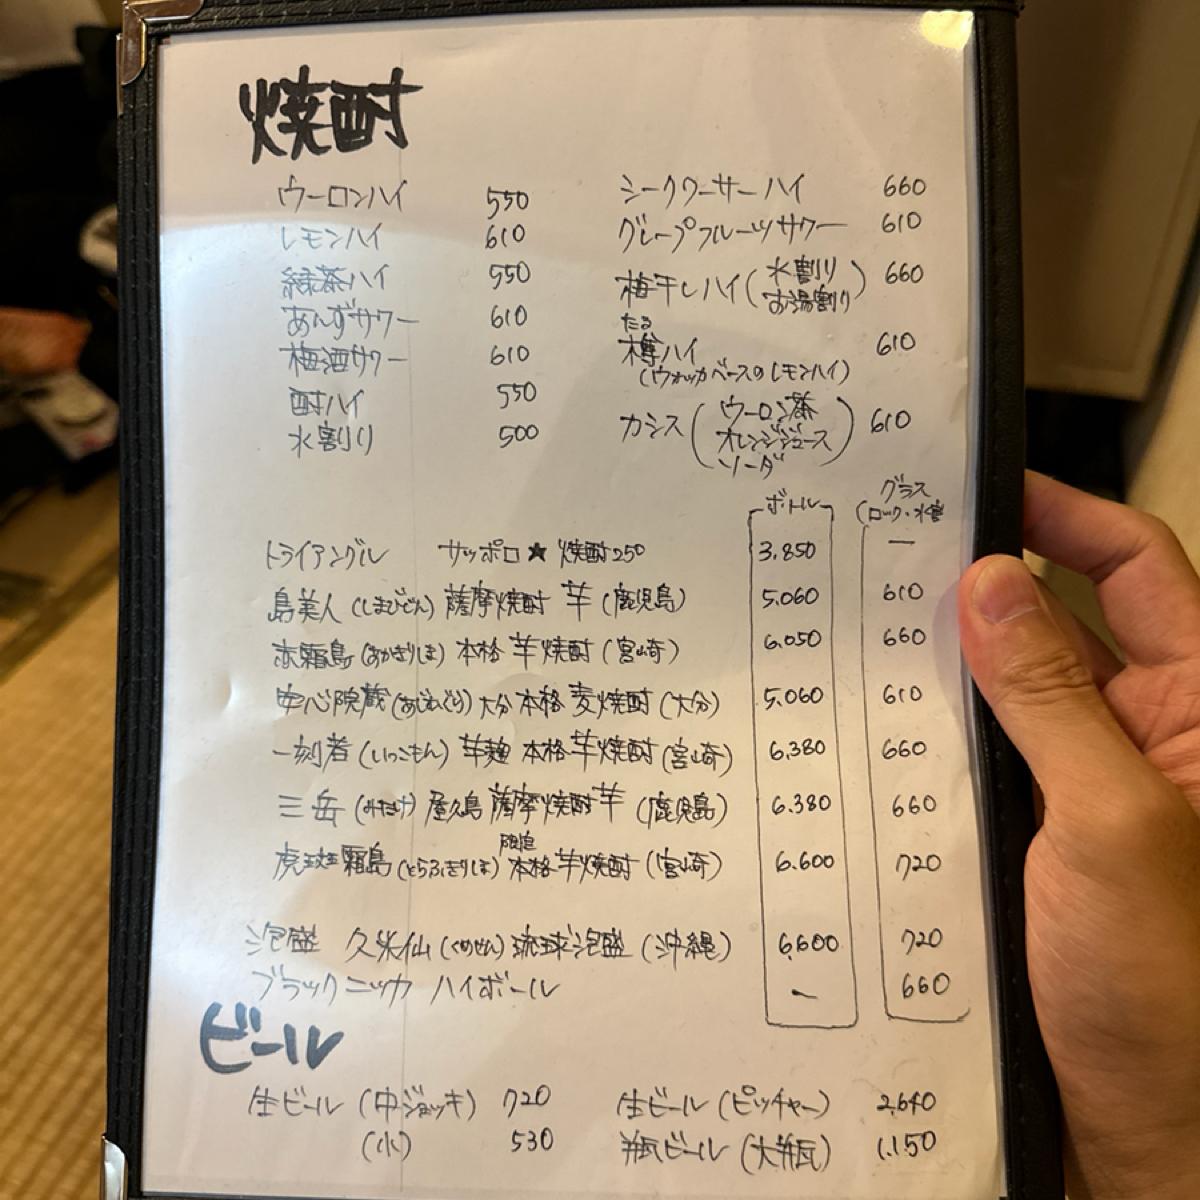 焼酎
ウーロンハイ 550
レモンハイ 610
緑茶ハイ 550
あんずサワー 610
梅酒サワー 610
酎ハイ 550
水割り 500
シークワーサーハイ 660
グレープフルーツサワー 610
梅干しハイ(水割り お湯割り) 660
たる
樽ハイ 610
(ウォッカベースのレモンハイ)
カシス(ウーロン茶 オレンジジュース ソーダ) 610
ボトル グラス
(ロック・水割
トライアングル サッポロ★焼酎250 3.850 ー
島美人(しまびじん)薩摩焼酎 芋(鹿児島) 5.060 610
赤霧島(あかぎりしま)本格芋焼酎(宮崎) 6.050 660
安心院蔵(あじむぐら)大分本格麦焼酎(大分) 5.060 610
一刻者(いっこもん)芋麹 本格芋焼酎(宮崎) 6.380 660
三岳(みたけ)屋久島 薩摩焼酎芋(鹿児島) 6.380 660
限定
虎斑霧島(とらふきりしま)本格芋焼酎(宮崎) 6.600 720
泡盛 久米仙(くめせん)琉球泡盛(沖縄) 6.600 720
ブラックニッカ ハイボール ー 660
ビール
生ビール(中ジョッキ) 720
(小) 530
生ビール(ピッチャー) 2.640
瓶ビール(大瓶) 1.150